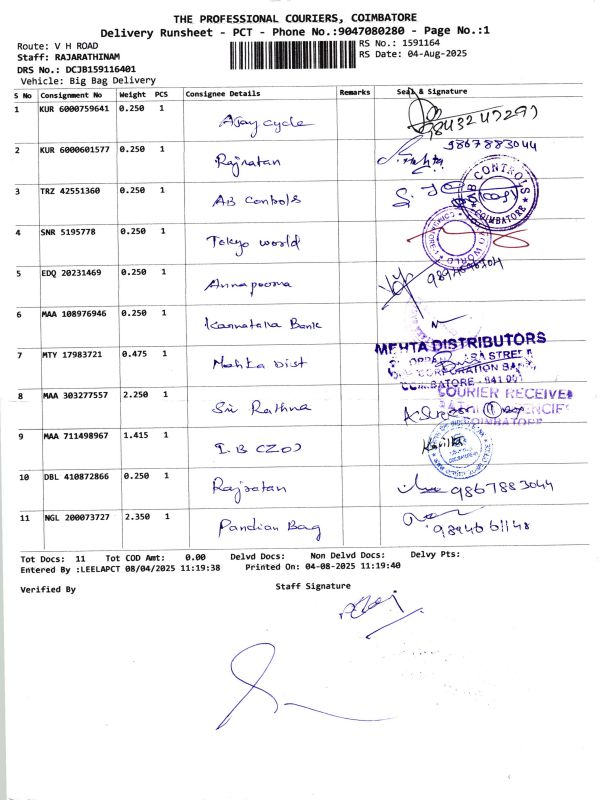 THE PROFESSIONAL COURIERS, COIMBATORE
Delivery Runsheet - PCT - Phone No.:9047080280 - Page No.:1
Route: V H ROAD
RS No.: 1591164
Staff: RAJARATHINAM
RS Date: 04-Aug-2025
DRS No.: DCJB159116401
Vehicle: Big Bag Delivery
S No Consignment No Weight PCS Consignee Details Remarks Seal & Signature
1 KUR 6000759641 0.250 1 Ajay cycle 9843247291
2 KUR 6000601577 0.250 1 Rajratan 9867883044
3 TRZ 42551360 0.250 1 AB Controls
AB CONTROLS COIMBATORE
4 SNR 5195778 0.250 1 Tokyo world
5 EDQ 20231469 0.250 1 Annapoorna
6 MAA 108976946 0.250 1 Karnataka Bank
7 MTY 17983721 0.475 1 Mehta Dist
MEHTA DISTRIBUTORS
CORPORATION BANK,
COIMBATORE - 641 001
8 MAA 303277557 2.250 1 Sri Rathna
COURIER RECEIVED
COIMBATORE
9 MAA 711498967 1.415 1 I.B CZO)
10 DBL 410872866 0.250 1 Rajratan 9867883044
11 NGL 200073727 2.350 1 Pandian Bag
Tot Docs: 11 Tot COD Amt: 0.00 Delvd Docs: Non Delvd Docs: Delvy Pts:
Entered By :LEELAPCT 08/04/2025 11:19:38 Printed On: 04-08-2025 11:19:40
Verified By
Staff Signature